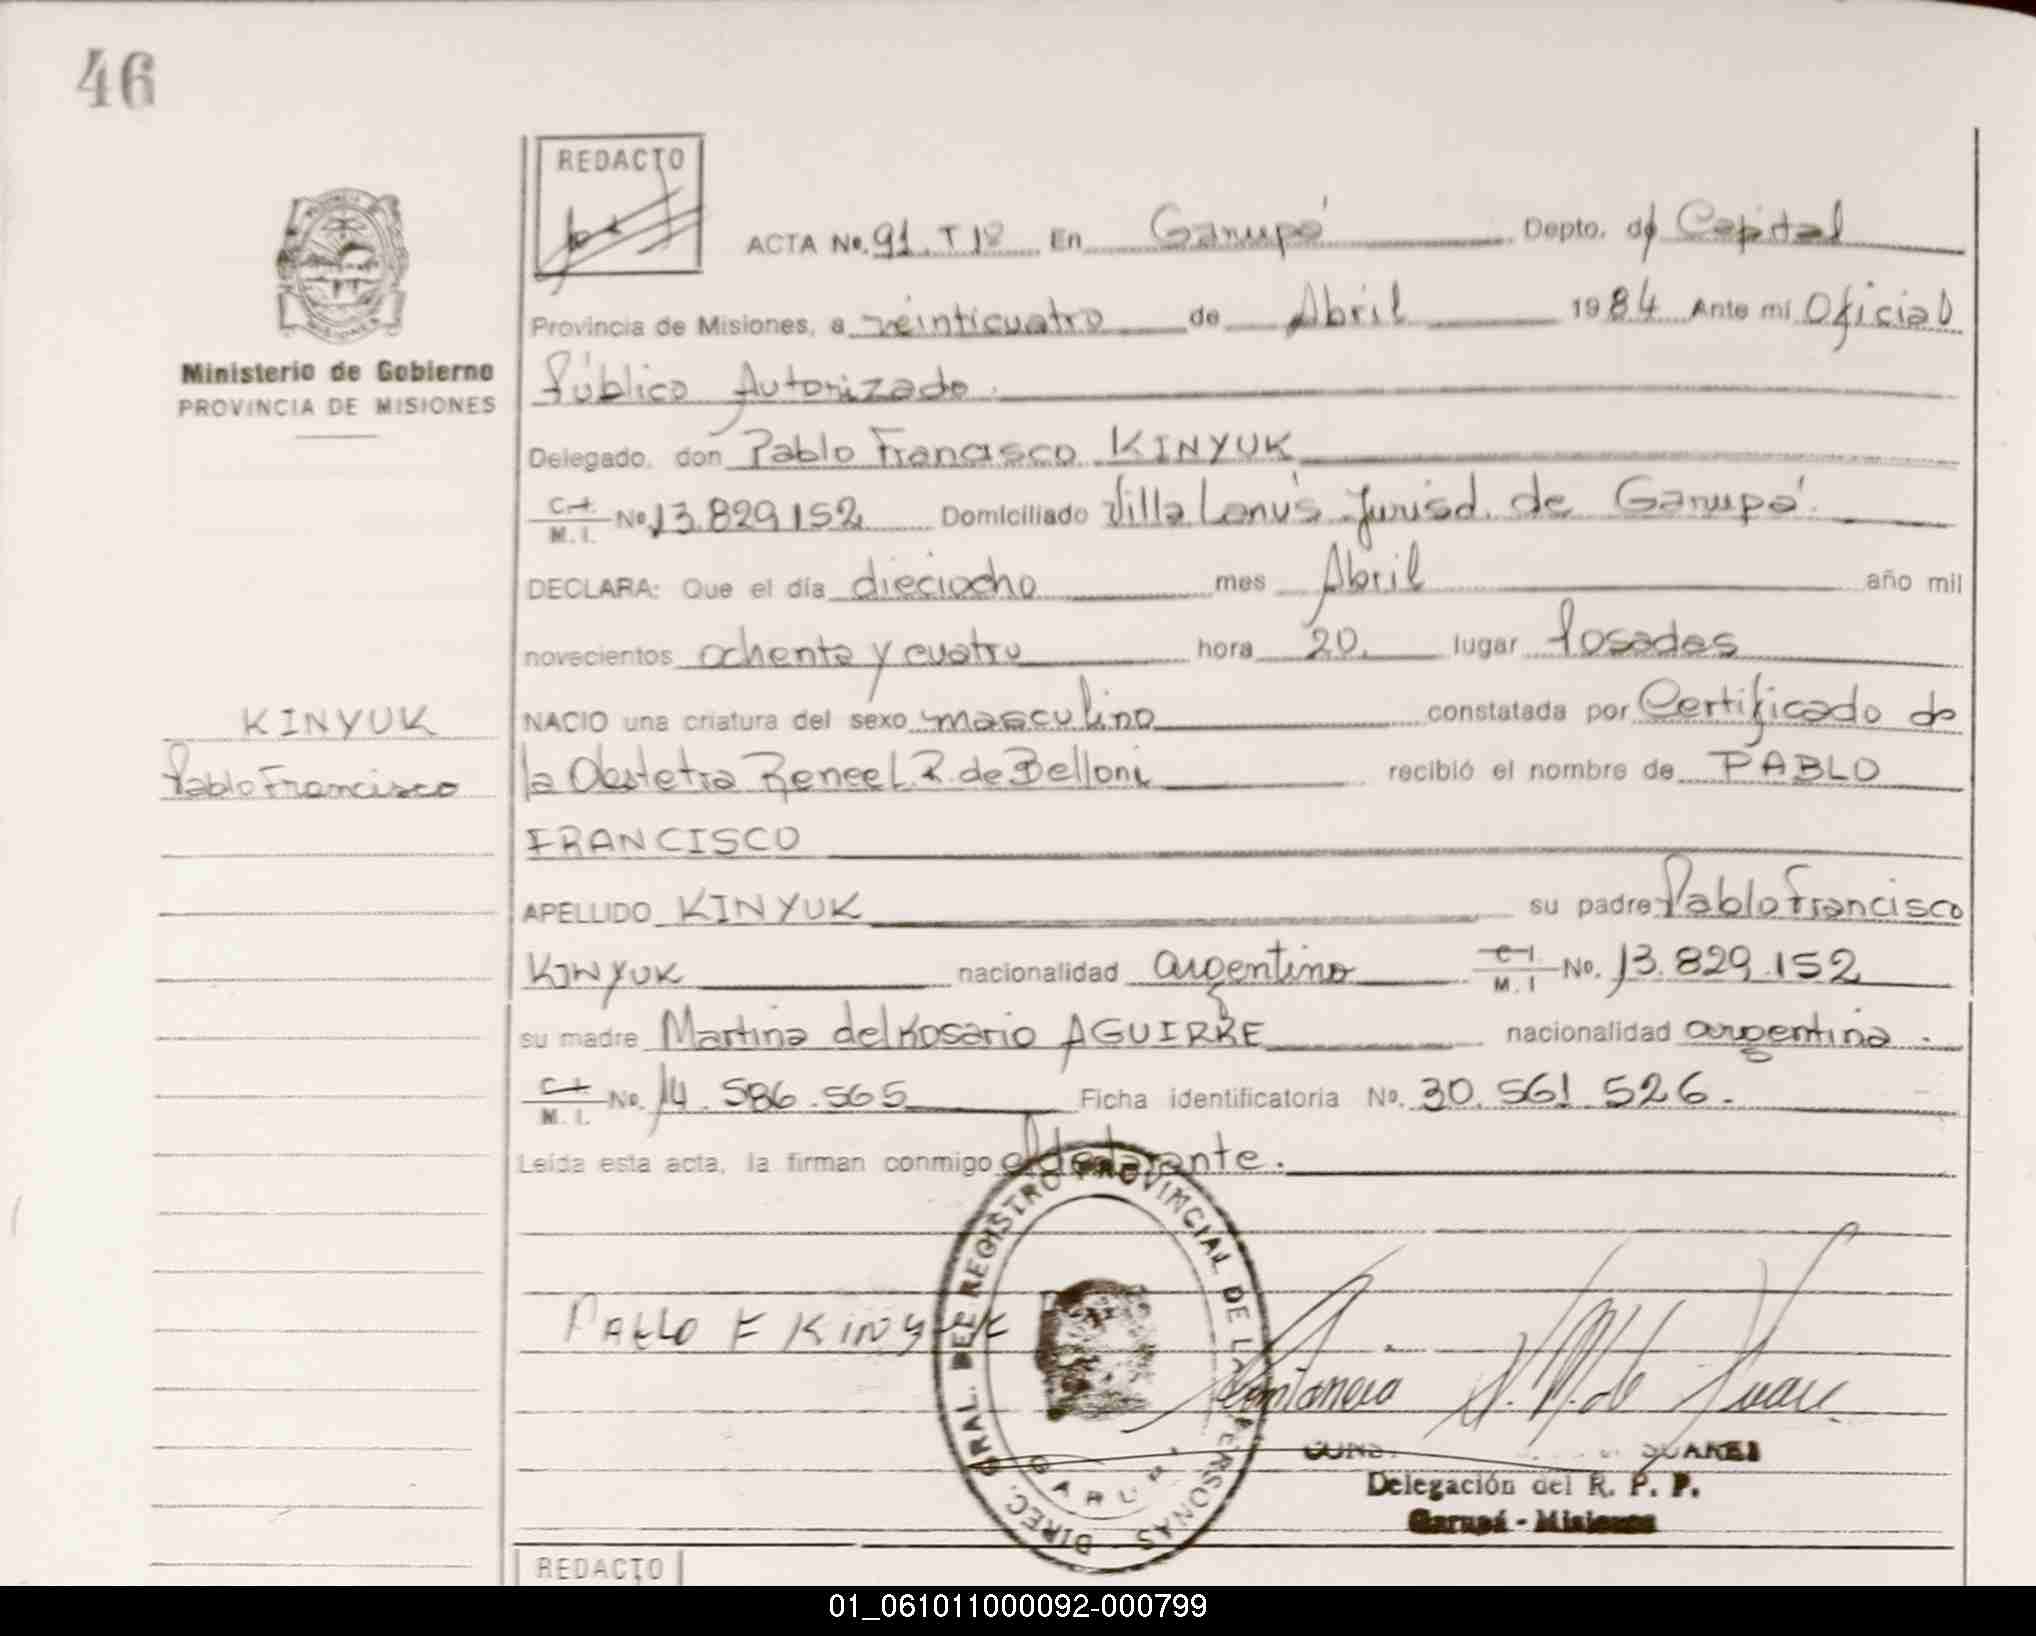 46
REDACTO
ACTA No. 91. T 1º En Garupá Depto. de Capital
Provincia de Misiones, a veinticuatro de Abril 1984 Ante mí Oficial
Público Autorizado.
Ministerio de Gobierno
PROVINCIA DE MISIONES
Delegado, don Pablo Francisco KINYUK
C.I. M.I. No 13.829.152 Domiciliado Villa Lanús Jurisd. de Garupá.
DECLARA: Que el día dieciocho mes Abril año mil
novecientos ochenta y cuatro hora 20. lugar Posadas
NACIO una criatura del sexo masculino constatada por Certificado de
la Obstetra Renee L. R. de Belloni recibió el nombre de PABLO
FRANCISCO
KINYUK
Pablo Francisco
APELLIDO KINYUK su padre Pablo Francisco
KINYUK nacionalidad argentino C.I. M.I No. 13.829.152
su madre Martina del Rosario AGUIRRE nacionalidad argentina.
C.I. M.I. No. 14.586.565 Ficha identificatoria No. 30.561.526.
Leída esta acta, la firman conmigo el declarante.
PABLO F KINYUK
DIREC. GRAL. DEL REGISTRO PROVINCIAL DE LAS PERSONAS
GARUPA
SUAREZ
Delegación del R. P. P.
Garupá - Misiones
REDACTO
01_061011000092-000799